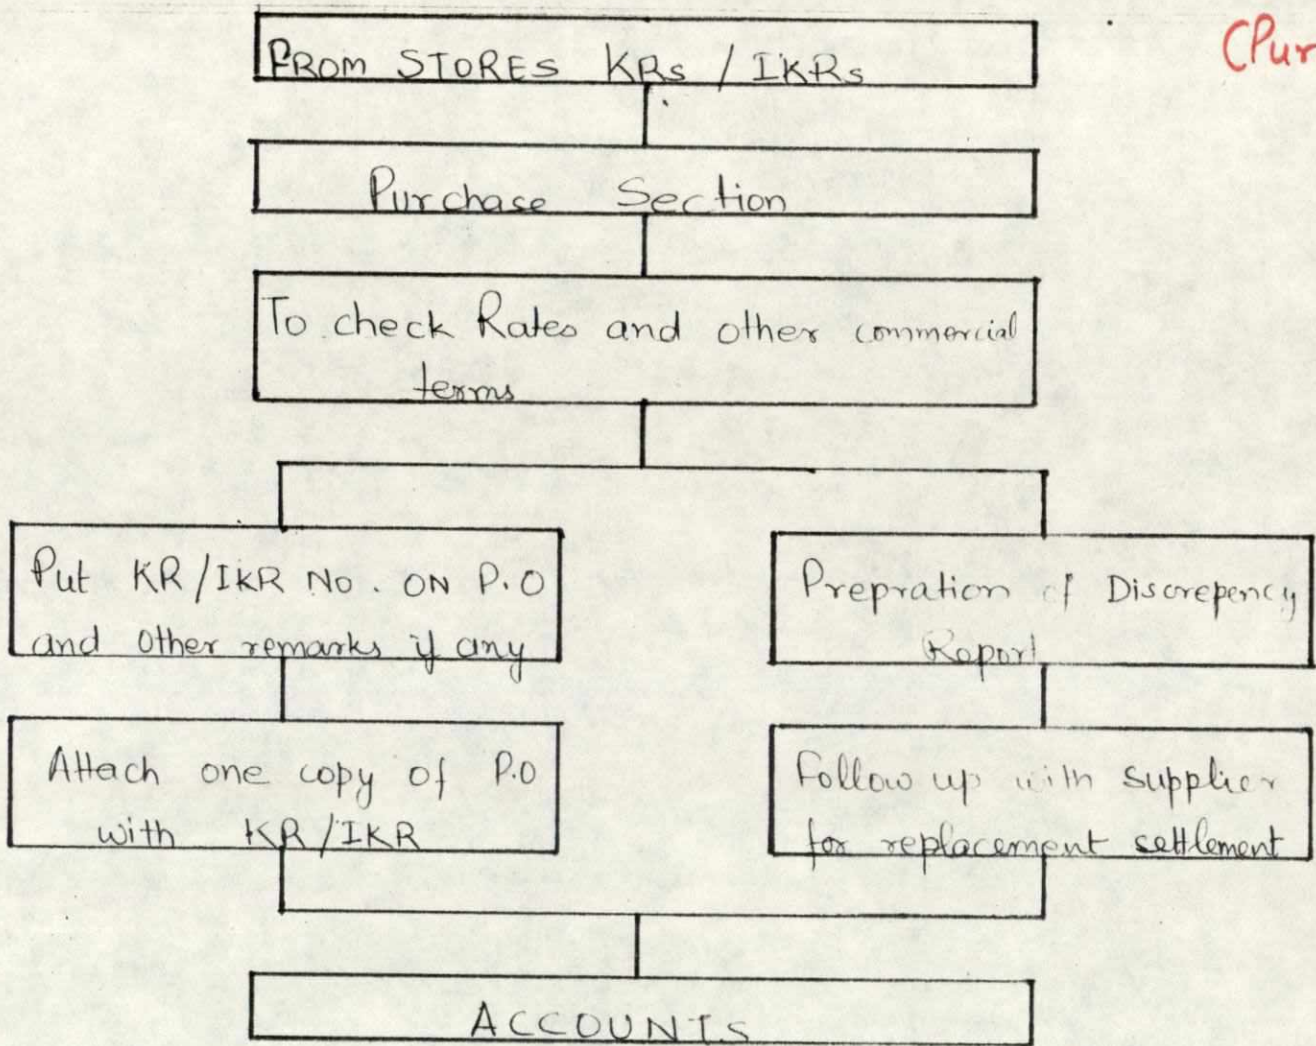 (Pur
FROM STORES KRs / IKRs
Purchase Section
To check Rates and other commercial
terms
Put KR/IKR No. ON P.O
and Other remarks if any
Prepration of Discrepency
Report
Attach one copy of P.O
with KR/IKR
Follow up with supplier
for replacement settlement
ACCOUNTS